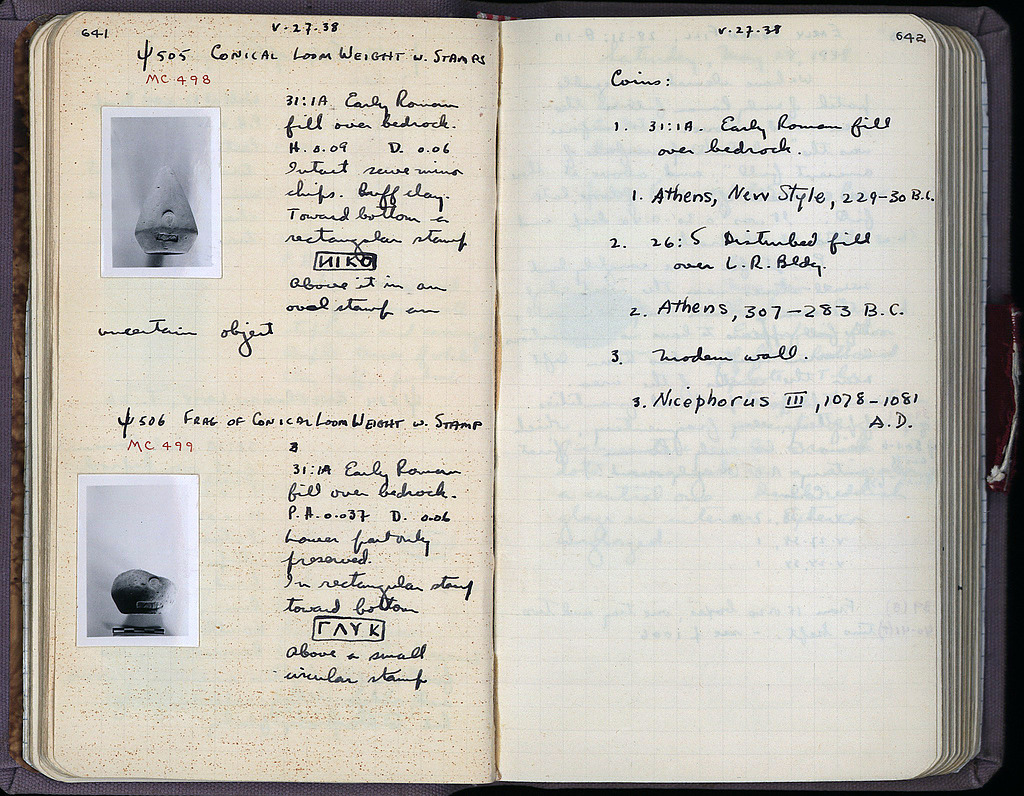 641
V·27·38
Ψ505 CONICAL LOOM WEIGHT W. STAMPS
MC 498
31:1A Early Roman
fill over bedrock.
H. 0.09 D. 0.06
Intact save minor
chips. Buff clay.
Toward bottom a
rectangular stamp
ИIKO
above it in an
oval stamp an
uncertain object
Ψ506 FRAG OF CONICAL LOOM WEIGHT W. STAMP
MC 499
31:1A Early Roman
fill over bedrock.
P.H. 0.037 D. 0.06
Lower part only
preserved.
In rectangular stamp
toward bottom
ΓΛΥΚ
above a small
circular stamp
V·27·38
642
Coins:
1. 31:1A. Early Roman fill
over bedrock.
1. Athens, New Style, 229-30 B.C.
2. 26:5 Disturbed fill
over L.R. Bldg.
2. Athens, 307-283 B.C.
3. Modern wall.
3. Nicephorus III, 1078-1081
A.D.